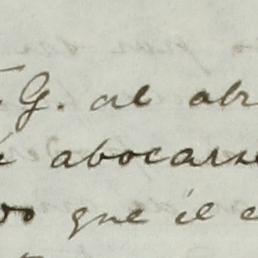 G. al abr
abocarse
do que il e